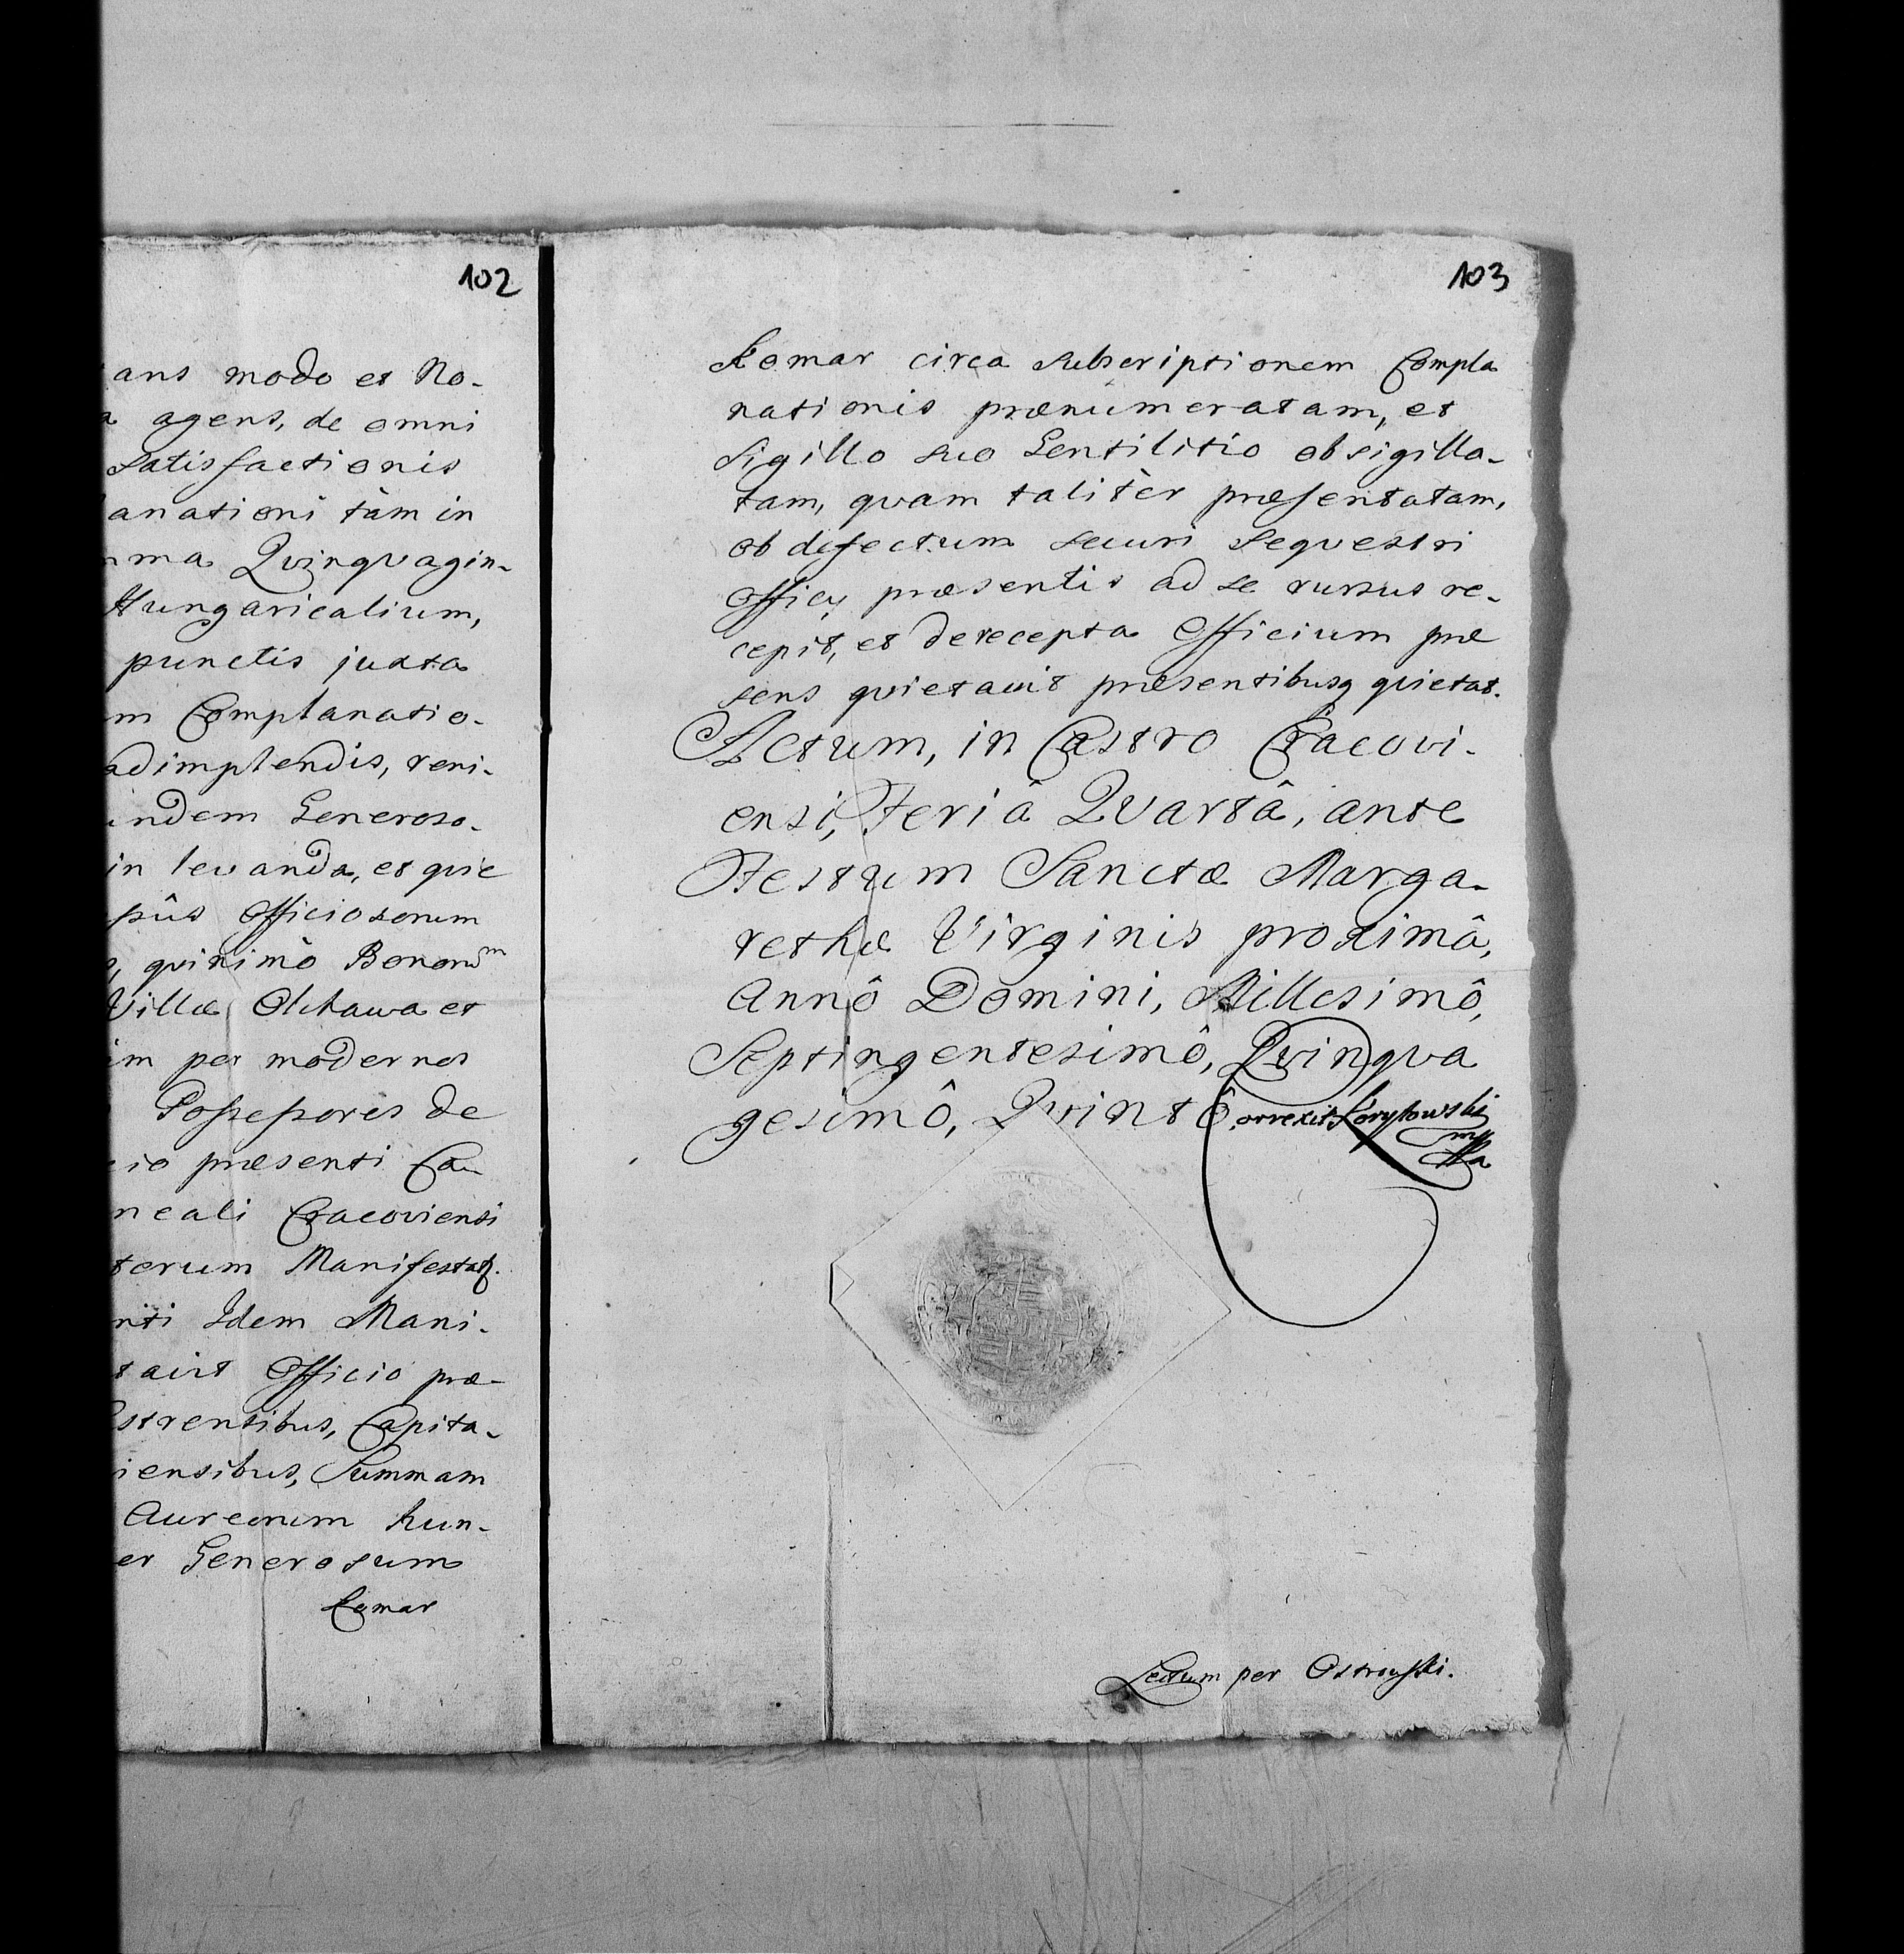 102
ans modo et No-
a agens, de omni
Satisfactionis
anationi tàm in
ma Qvinqvagin-
Hungaricalium,
punctis juxta
m Complanatio-
adimplendis, reni-
indem Generoso-
in levanda, et qvie
pûs Officiosorum
qvinimò Bonorum
Villæ Olchawa et
im per modernos
Possessores de
io præsenti Ca
neali Cracoviensi
terum Manifestatq.
nti Idem Mani-
tavit Officio præ-
strensibus, Capita-
iensibus, Summam
Aureorum hun-
er Generosum
Komar
103
Komar circa subscriptionem Compla
nationis prænumeratam, et
Sigillo suo Gentilitio obsigilla-
tam, qvam talitèr præsentatam,
ob defectum securi Seqvestri
Officij præsentis ad se rursus re-
cepit, et de recepta Officium præ
sens qvietavit præsentibusq qvietat.
Actum, in Castro Cracovi-
ensi, Feriâ Qvartâ, ante
Festum Sanctæ Marga-
rethæ Virginis proximâ,
Annô Domini, Millesimô,
Septingentesimô, Qvinqva
gesimô, Qvintô
Correxit Korytowski
mppa
Lectum per Ostrowski.